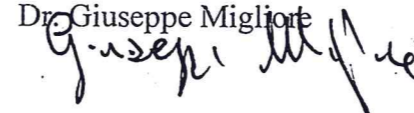 Dr. Giuseppe Migliore
Giuseppe Migliore